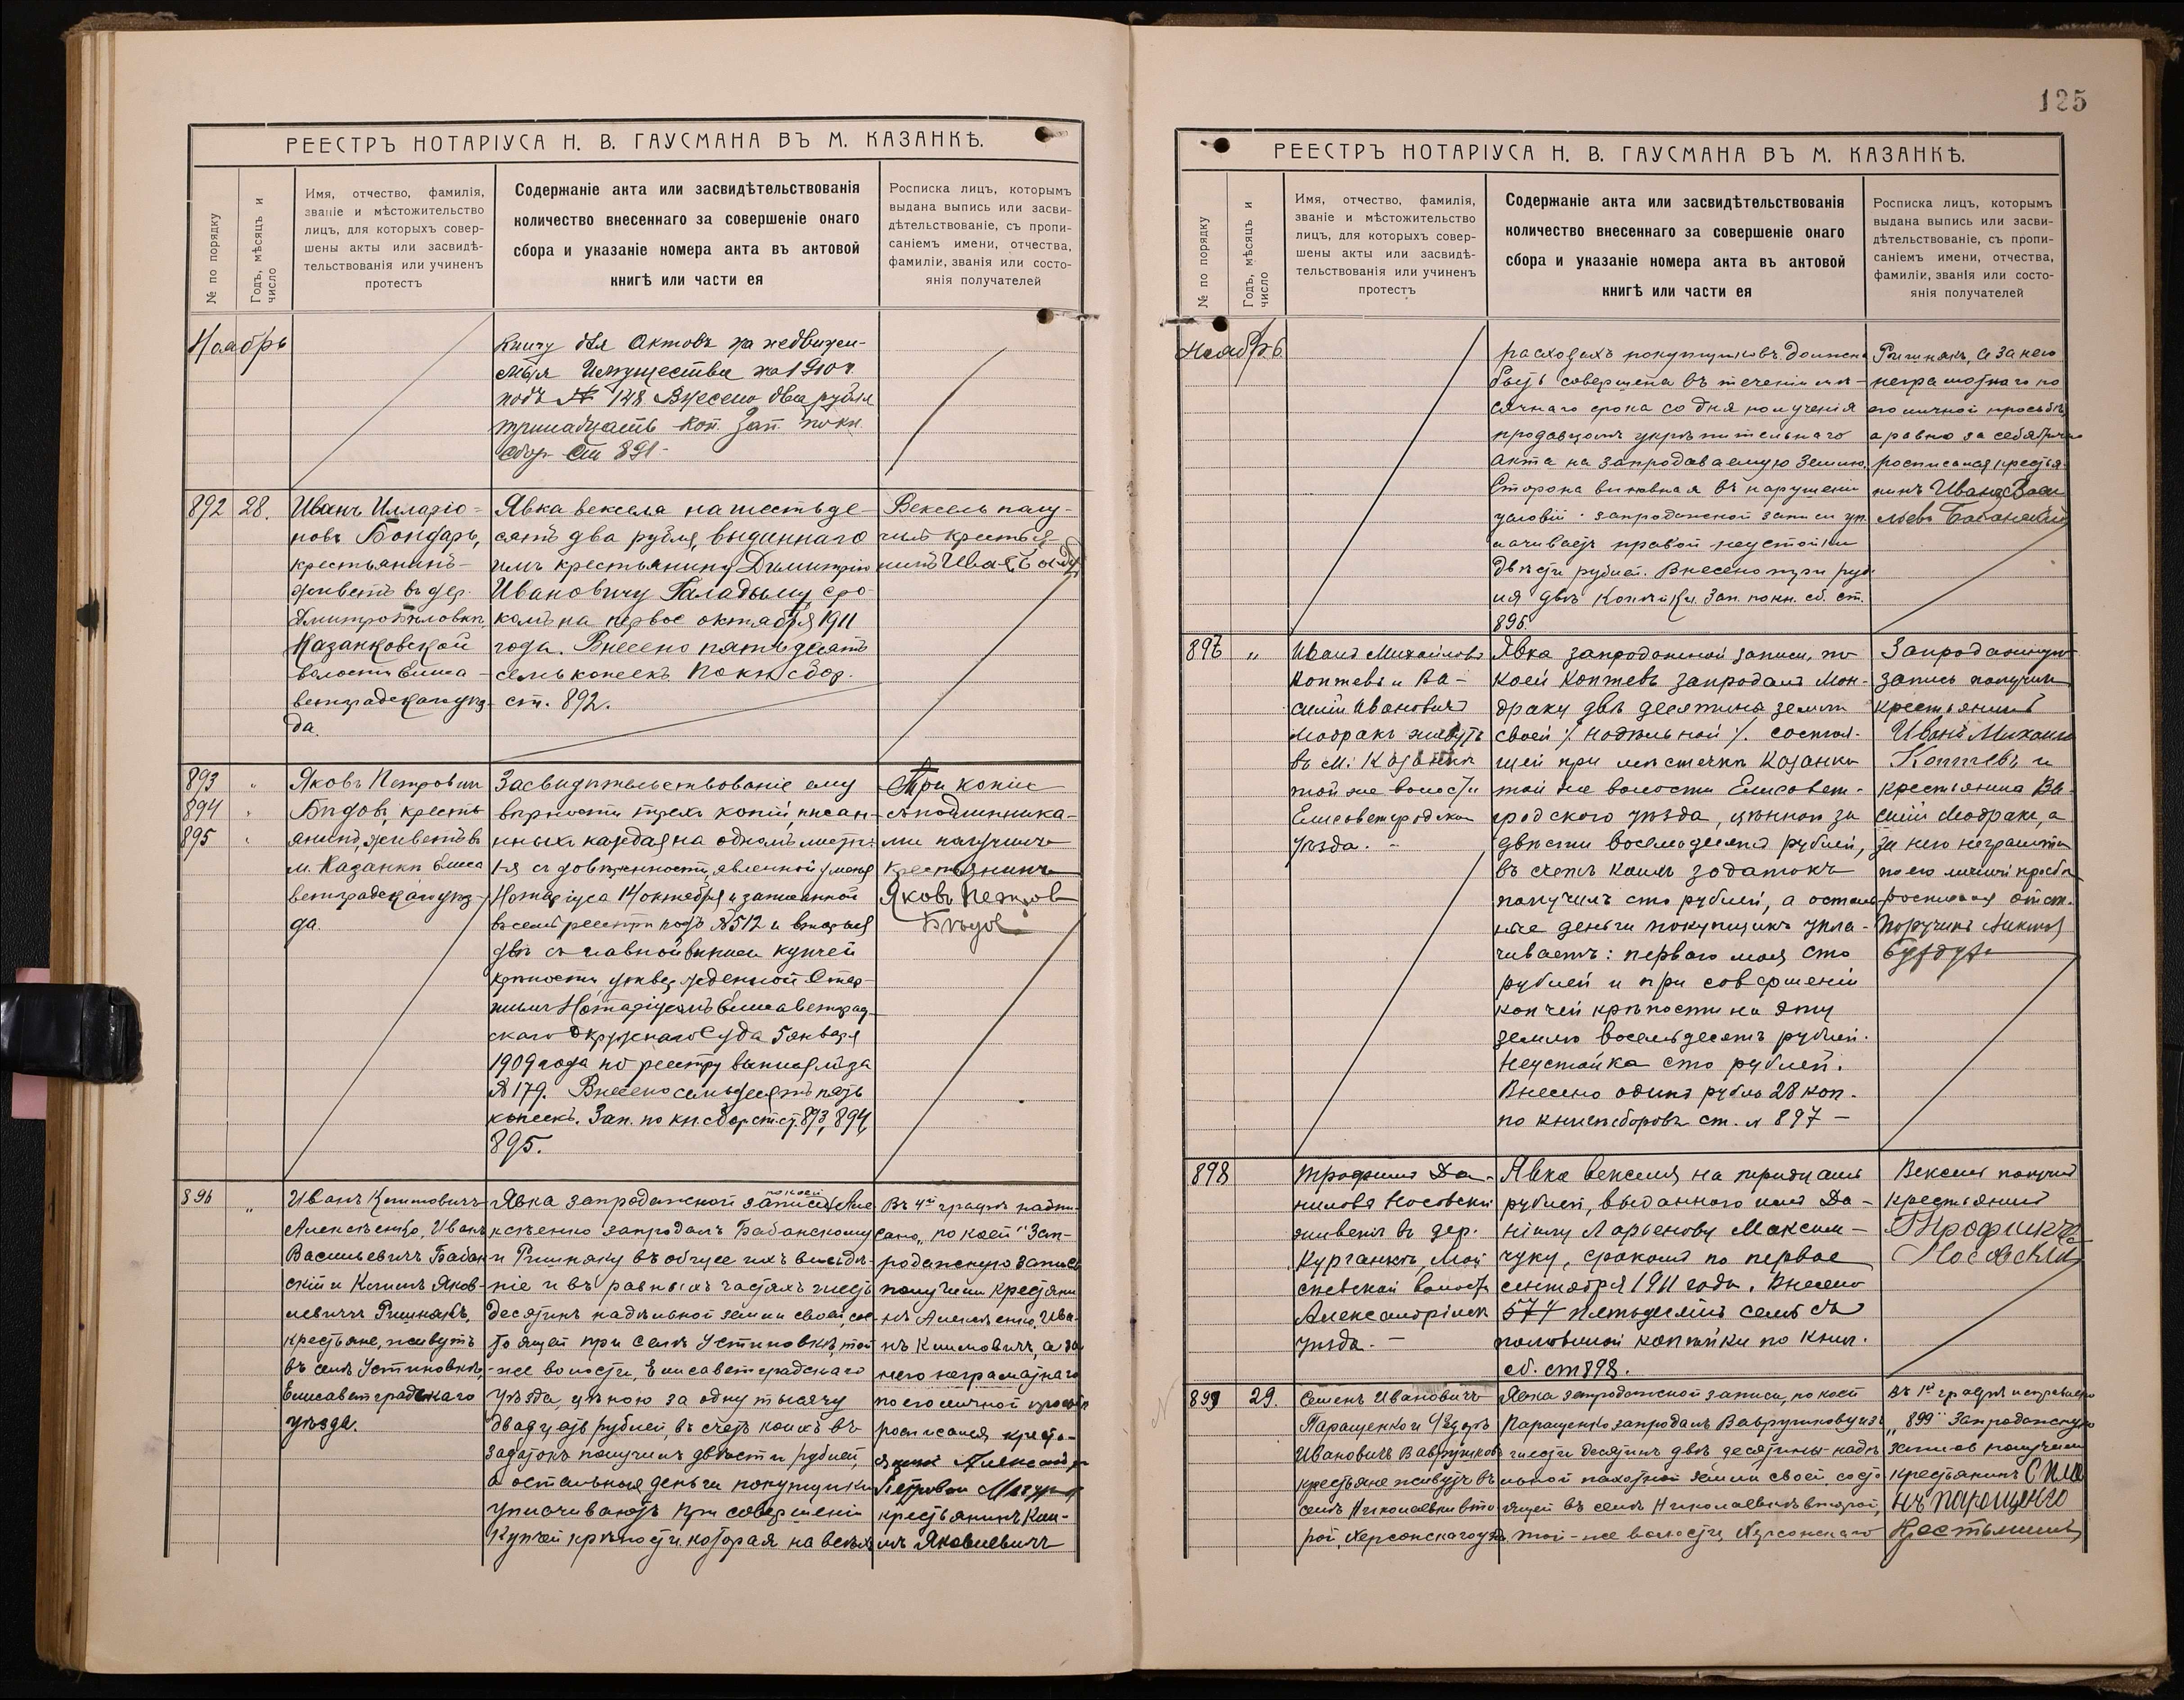 РЕЕСТРЪ НОТАРІУСА Н. В. ГАУСМАНА ВЪ М. КАЗАНКѢ.
№ по порядку
Годъ, мѣсяцъ и
число
Имя, отчество, фамилія,
званіе и мѣстожительство
лицъ, для которыхъ совер-
шены акты или засвидѣ-
тельствованія или учиненъ
протестъ
Содержаніе акта или засвидѣтельствованія
количество внесеннаго за совершеніе онаго
сбора и указаніе номера акта въ актовой
книгѣ или части ея
Росписка лицъ, которымъ
выдана выпись или засви-
дѣтельствованіе, съ пропи-
саніемъ имени, отчества,
фамиліи, званія или состо-
янія получателей
Ноябрь
книгу для Актовъ на недвижи-
мыя Имущества на 1910 г.
подъ № 148. Внесено два рубля
тринадцать коп. Зап. по кн.
сбор. ст. 891.
892
28.
Иванъ Илларіо-
новъ Бондарь,
крестьянинъ
живетъ въ дер.
Казанковской
волости Елиса-
ветградскаго уѣз-
да.
Явка векселя на шестьде-
сятъ два рубля, выданнаго
имъ крестьянину Димитрію
Ивановичу Галадыму, сро-
комъ на первое октября 1911
года. Внесено пятьдесятъ
семь копеекъ. По кн. сбор.
ст. 892.
Вексель полу-
чилъ крестья-
нинъ
893
894
895
Яковъ Петровичъ
Бѣдовъ, кресть-
янинъ, живетъ въ
м. Казанкѣ Елиса-
ветградскаго уѣз-
да.
Засвидѣтельствованіе ему
вѣрности трехъ копій, писан-
ныхъ каждая на одномъ листѣ:
1-я съ довѣренности, явленной у меня
Нотаріуса 14 октября и записанной
въ семъ реестрѣ подъ № 512 и вторыя
двѣ съ главной выписи купчей
крѣпости, утвержденной Стар-
шимъ Нотаріусомъ Елисаветград-
скаго Окружнаго Суда 5 января
1909 года по реестру за
№ 179. Внесено семьдесятъ пять
копеекъ. Зап. по кн. сбор. ст. ст. 893, 894,
895.
Три копіи
съ подлинника-
ми получилъ
крестьянинъ
Яковъ Петров
Бѣдов
896
„
Иванъ Климовичъ
Алексѣенко, Иванъ
Васильевичъ Бабан-
скій и Климъ Яков-
левичъ Ришнякъ,
крестьяне, живутъ
въ селѣ Устиновкѣ,
Елисаветградскаго
уѣзда.
по коей
Явка запродажной записи, Але-
ксѣенко запродалъ Бабанскому
и Ришняку въ общее ихъ владѣ-
ніе и въ равныхъ частяхъ шесть
десятинъ надѣльной земли своей, сос-
тоящей при селѣ Устиновкѣ, той
-же волости, Елисаветградскаго
уѣзда, цѣною за одну тысячу
двадцать рублей, въ счетъ коихъ въ
задатокъ получилъ двѣсти рублей,
а остальныя деньги покупщики
уплачиваютъ при совершеніи
купчей крѣпости, которая на всѣхъ
Въ 4й графѣ надпи-
сано „по коей“ Зап-
родажную запись
получили крестьяни-
нъ Алексѣенко, Ива-
нъ Климовичъ, а за
него неграмотнаго
по его личной просьбѣ
росписался кресть-
янинъ Александръ
Петровъ
крестьянинъ Кли-
мъ Яковлевичъ
125
РЕЕСТРЪ НОТАРІУСА Н. В. ГАУСМАНА ВЪ М. КАЗАНКѢ.
№ по порядку
Годъ, мѣсяцъ и
число
Имя, отчество, фамилія,
званіе и мѣстожительство
лицъ, для которыхъ совер-
шены акты или засвидѣ-
тельствованія или учиненъ
протестъ
Содержаніе акта или засвидѣтельствованія
количество внесеннаго за совершеніе онаго
сбора и указаніе номера акта въ актовой
книгѣ или части ея
Росписка лицъ, которымъ
выдана выпись или засви-
дѣтельствованіе, съ пропи-
саніемъ имени, отчества,
фамиліи, званія или состо-
янія получателей
Ноябрь
расходахъ покупщиковъ должна
быть совершена въ теченіи мѣ-
сячнаго срока со дня полученія
продавцомъ укрѣпительнаго
акта на запродаваемую землю.
Сторона виновная въ нарушеніи
условій запродажной записи уп-
лачиваетъ правой неустойки
двѣсти рублей. Внесено три руб-
ля двѣ копѣйки. Зап. по кн. сб. ст.
896.
Ришнякъ, а за него
неграмотнаго по
его личной просьбѣ,
а равно за себя
росписался крестья-
нинъ Иванъ Васи
льевъ Бабанскій
897
„
Иванъ Михайловъ
Коптевъ и Ва-
силій Ивановичъ
Мадракъ живутъ
въ м. Казанкѣ
той же волости
Елисаветградскаго
уѣзда. -
Явка запродажной записи, по
коей Коптевъ запродалъ Мон-
драку двѣ десятины земли
своей /надѣльной/, состоя-
щей при мѣстечкѣ Казанкѣ
той же волости Елисавет-
градского уѣзда, цѣною за
двѣсти восемьдесятъ рублей,
въ счетъ коихъ задатокъ
получилъ сто рублей, а осталь-
ные деньги покупщикъ упла-
чиваетъ: перваго мая сто
рублей и при совершеніи
копчей крѣпости на эту
землю восемьдесятъ рублей.
Неустойка сто рублей.
Внесено одинъ рубль 28 коп.
по книгѣ сборовъ ст. № 897 —
Запродажную
запись получили
крестьянинъ
Иванъ Михаил
Коптевъ и
крестьянинъ Ва-
силій Мадракъ, а
за него неграмотн
по его личной просьбѣ
росписался отст.
Поручикъ
898
Трофимъ Да-
нилова Носовскій
живетъ въ дер.
Курганкѣ, Мой-
сеевской волости
Александрійск
уѣзда. —
Явка векселя на тридцать
рублей, выданного имъ Да-
нилу Ларьенову Максим-
чуку, срокомъ по первое
сентября 1911 года. Внесено
57½ пятьдесятъ семь съ
половиной копѣйки по книг.
сб. ст 898.
Вексель получилъ
крестьянинъ
Трофимъ
Носовскій
899
29.
Семенъ Ивановичъ
Паращенко и Ѳедоръ
Ивановичъ Вавружковъ
крестьяне живутъ въ
селѣ Николаевкѣ вто-
рой, Херсонскаго уѣз.
Явка запродажной записи, по коей
Паращенко запродалъ Вавружкову изъ
шести десятинъ двѣ десятины надѣ-
льной пахотной земли своей, состо-
ящей въ селѣ Николаевкѣ второй,
той-же волости, Херсонскаго
Въ 1й графѣ исправлено
„899“ Запродажную
запись получили
крестьянинъ Симе
нъ Паращенко
Крестьянинъ